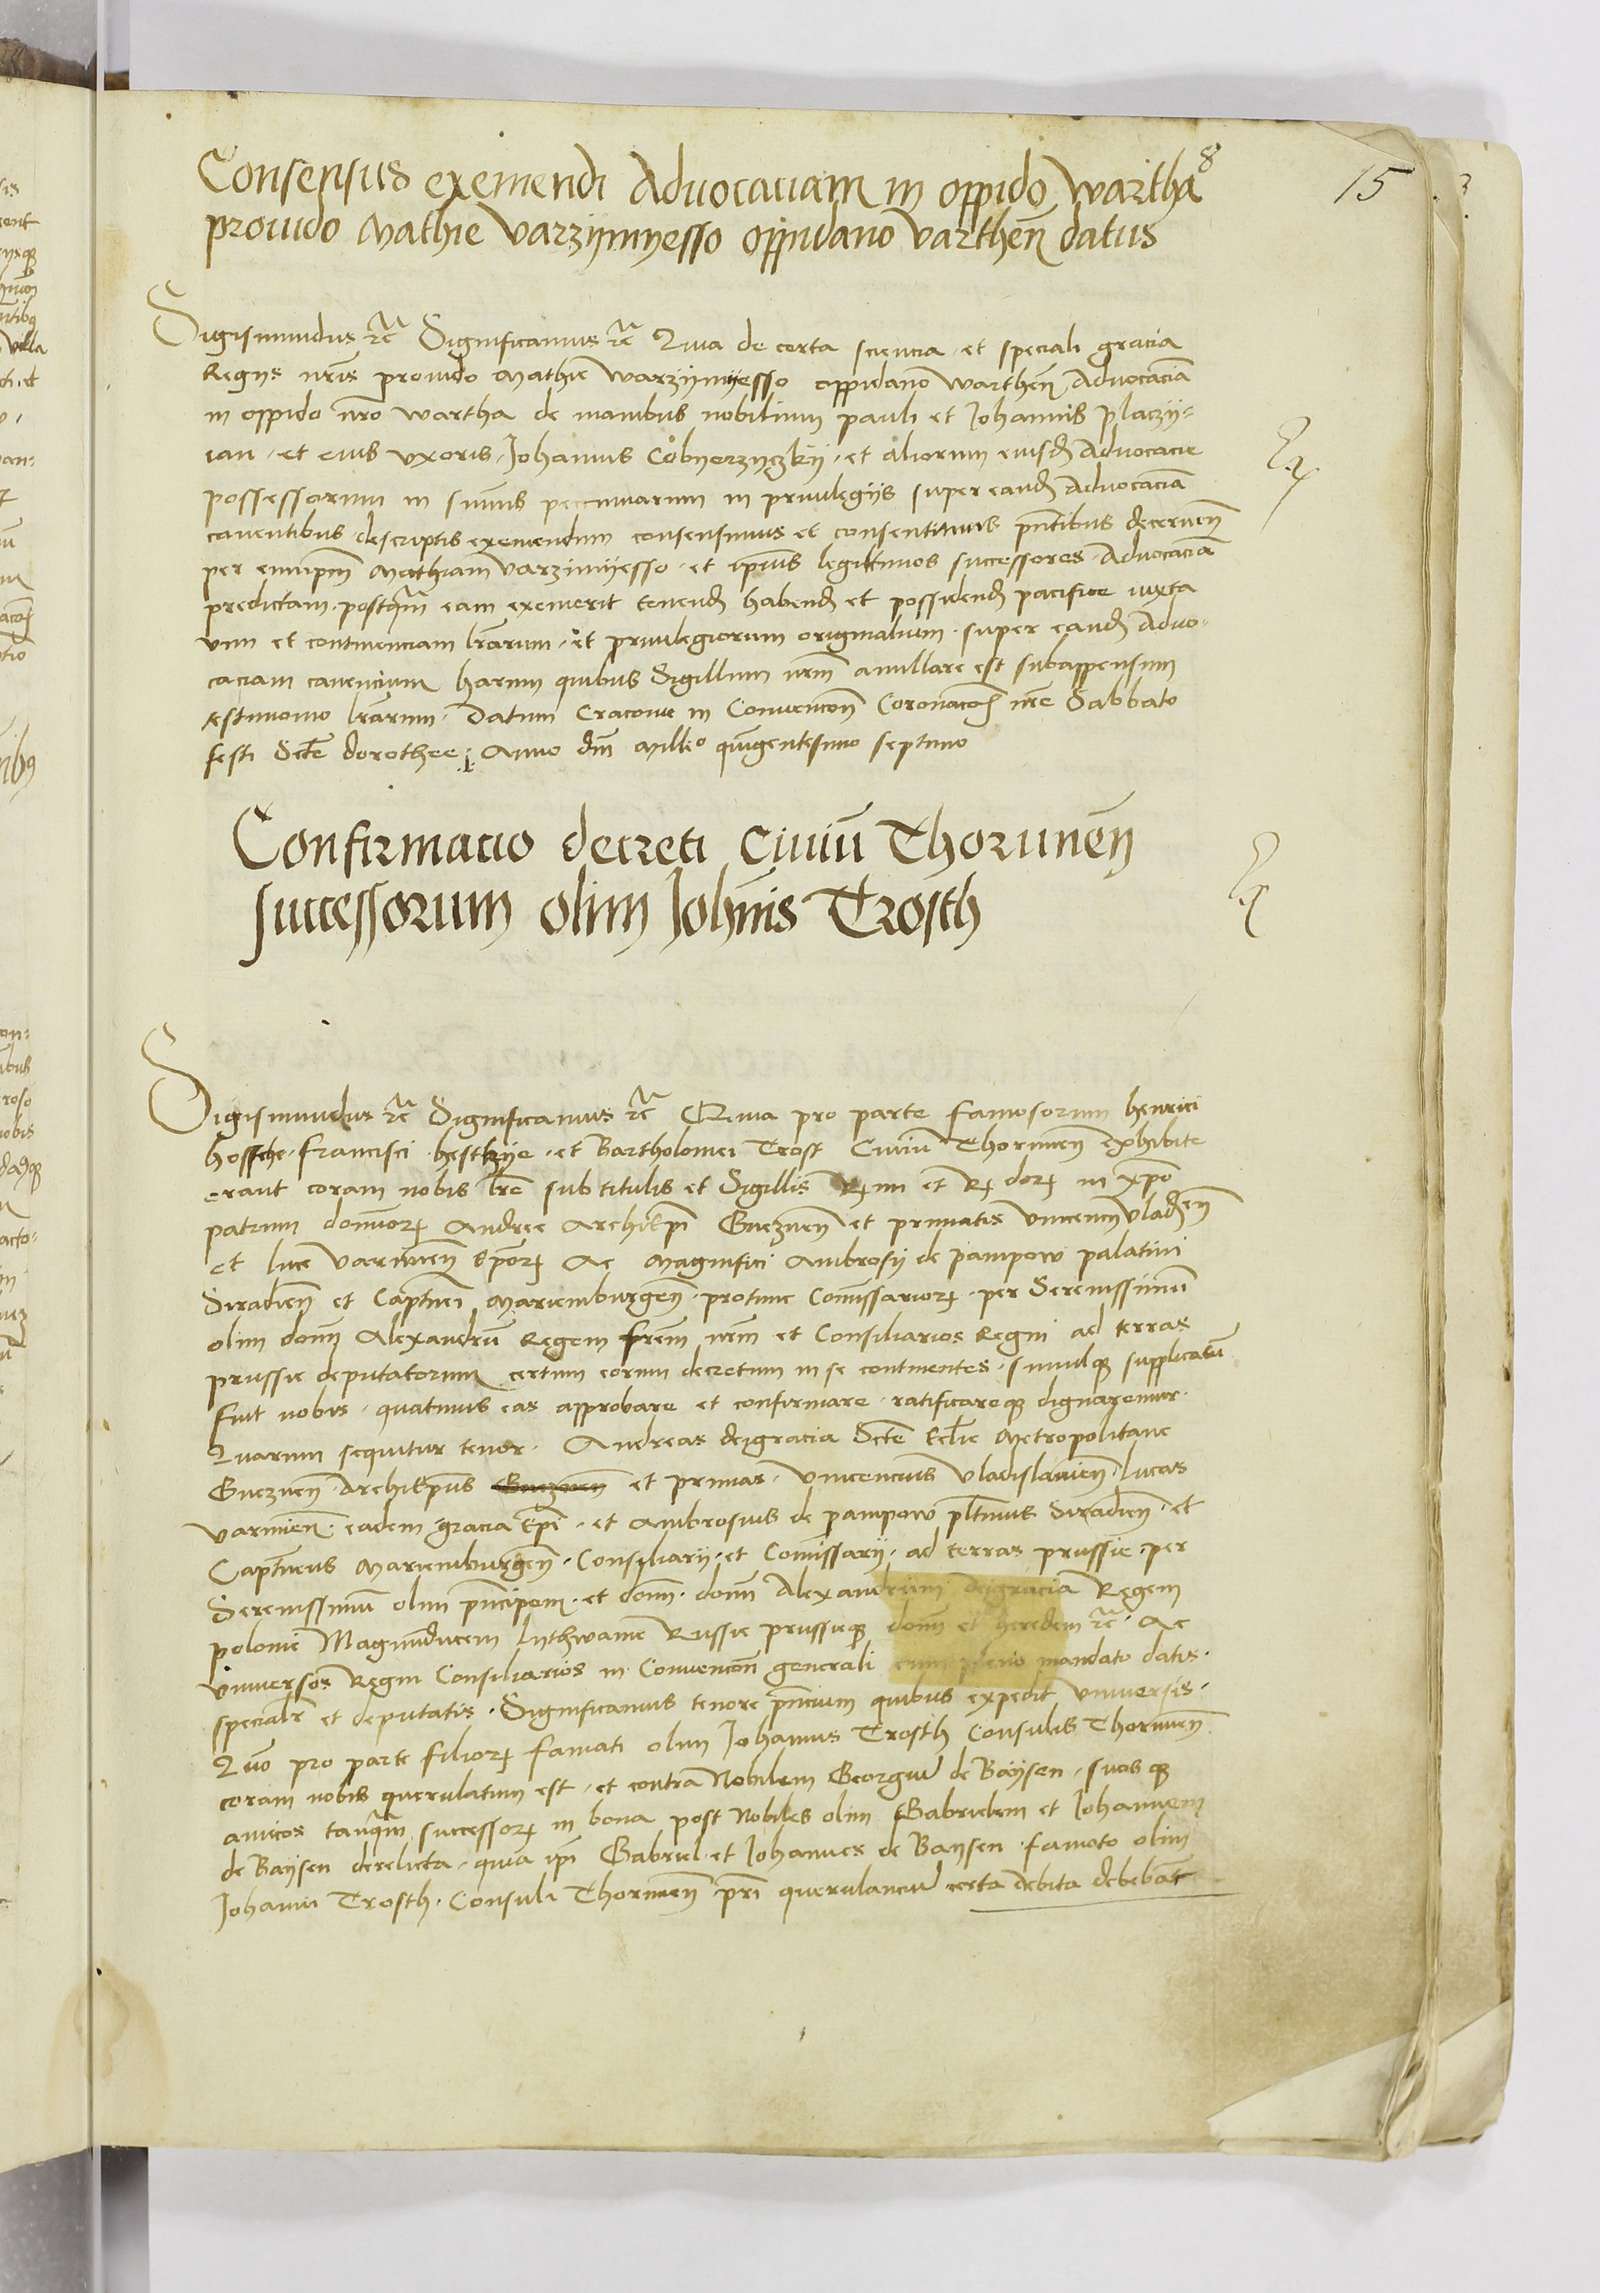 15
8
Consensus exemendi Advocaciam in oppido Wartha
prouido Mathie Varzymyesso oppidano Varthen̄ datus
Sigismundus rc̄ Significamus rc̄ Quia de certa sciencia et speciali gracia
Regijs nr̄is prouido Mathie Warzymyesso oppidano Warthen̄ Advocaciā
in oppido nr̄o Wartha de manibus nobilium pauli et Johannis
et eius vxoris, Johannis et aliorum eiusd̄ Advocacie
possessorum in sum̄is pecuniarum in priuilegijs super eand̄ Advocaciā
cauentibus descriptis exemendum consensimus et consentimus pn̄tibus decernen̄
per eumpm̄ Mathiam Varzimyesso et ipsius legittimos successores Advocaciā
predictam postq̄m eam exemerit tenend̄ habend̄ et possidend̄ pacifice iuxta
vim et continenciam lr̄arum et priuilegiorum originalium super eand̄ Advo-
caciam cauencium harum quibus Sigillum nr̄m anullare est subappensum
testimonio lr̄arum. Datum Cracouie in Conuencōn Coronacōis nr̄e Sabbato
festi Sctē dorothee Anno dn̄i Mill̄o quīgentesimo septimo
Confirmacio decreti Ciuiū Thorunen̄
successorum olim Joh̄nis Trosth
Sigismundus rc̄ Significamus rc̄ Quia pro parte famosorum henrici
francisci et Bartholomei Trost Ciuiū Thorunen̄ exhibite
erant coram nobis lr̄e sub titulis et Sigillis in xp̄o
patrum dominorꝝ Andree Archiep̄i Gneznen̄ et primatis vincencij vladen̄
et luce varmien̄ Ep̄orꝝ Ac Magnifici Ambrosij de pampow palatini
Siradien̄ et Captnei Mariemburgen̄ protunc Comissariorꝝ per Serenissimū
olim domn̄ Alexandrū Regem frēm nr̄m et Consiliarios Regni ad terras
prussie deputatorum certum eorum decretum in se continentes simulqꝫ supplicatū
fuit nobis quatinus eas approbare et confirmare ratificareqꝫ dignaremur.
Quarum sequitur tenor. Andreas deigracia Sctē Eccl̄ie Metropolitane
Gneznen̄ Archiep̄us Gneznen̄ et primas, vincencius vladislauien̄ lucas
varmien̄ eadem gracia Ep̄i et Ambrosius de pampow pltinus Siradien̄ et
Captneus Mariemburgen̄ Consiliarij et Comissarij ad terras prussie per
Serenissimū olim pn̄cipem et domn̄ domn̄ Alexandrum deigracia Regem
polonie Magnumducem lythwanie Russie prussieqꝫ domn̄ et heredem rc̄ Ac
vniuersos Regni Consiliarios in Conuencōn generali cum pleno mandato datis
specialr̄ et deputatis. Significamus tenore pn̄cium quibus expedit vniuersis.
Quō pro parte filiorꝝ famati olim Johannis Trosth Consulis Thorunen̄
coram nobis querulatum est et contra Nobilem Georgiū de Baysen suos qꝫ
amicos tanq̄m successorꝝ in bona post Nobiles olim Gabrielem et Johannem
de Baysen derelicta, quia ip̄i Gabriel et Johannes de Baysen famato olim
Johanni Trosth Consuli Thorunen̄ pr̄i querulanciū certa debita debebāt